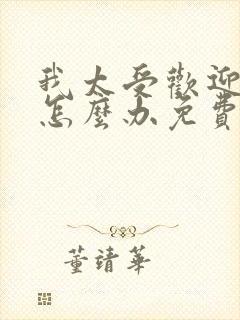 我太受歡迎
怎麼办免費
董靖華